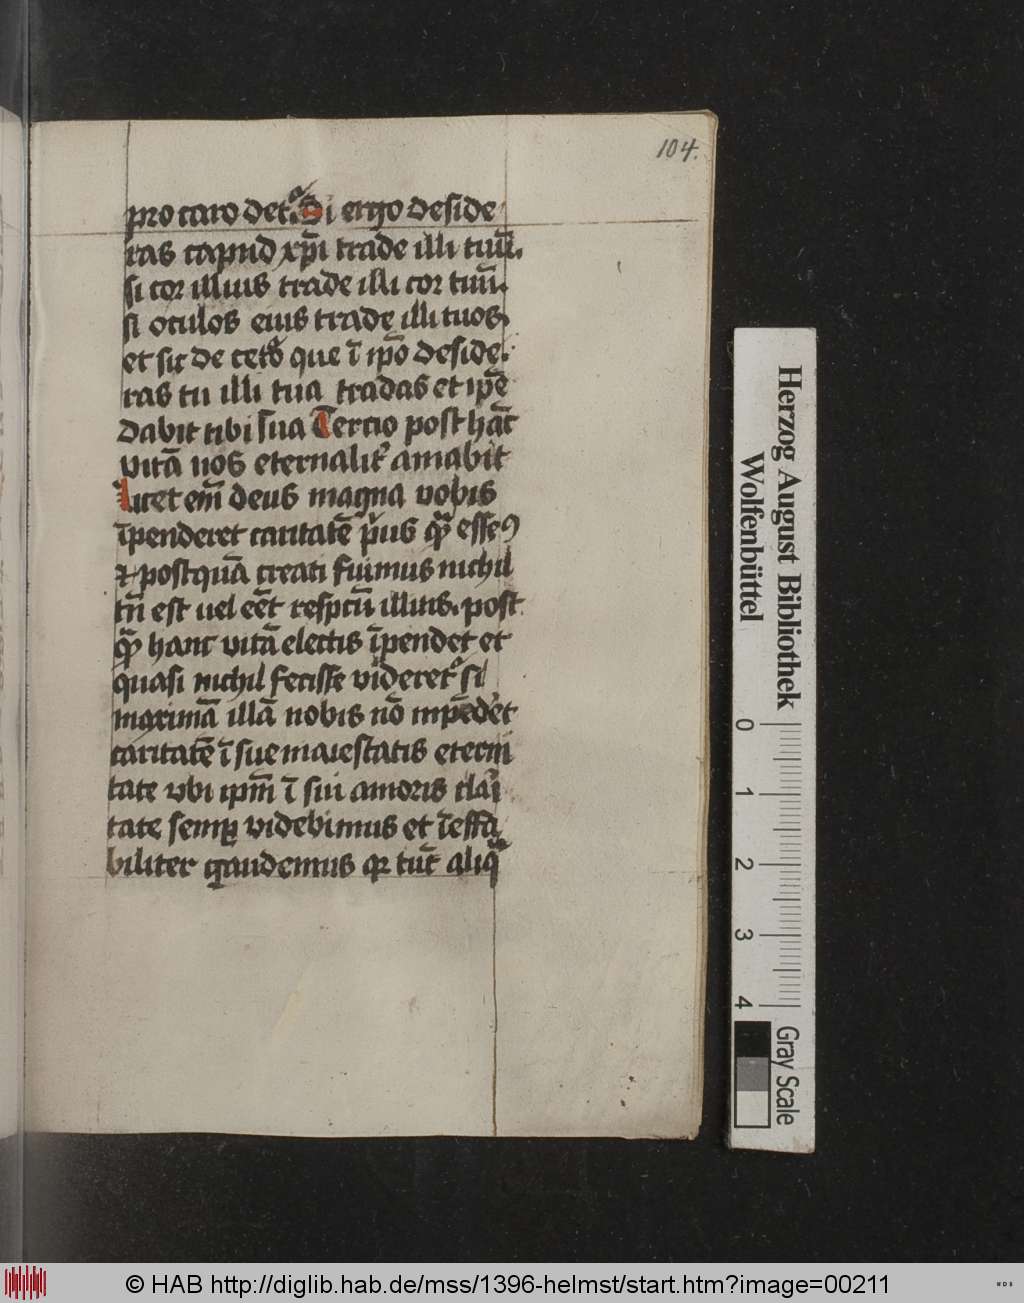 104.
pro caro det᷑. Si ergo deside
ras capud xp̄i trade illi tuū.
si cor illius trade illi cor tuū.
si oculos eius trade illi tuos.
et sic de cet̾ que ī ip̄o deside.
ras tu illi tua tradas et ip̄e
dabit tibi sua Tercio post hāc
vitā nos eternalit᷑ amabit
Licet em̄ deus magna vobis
īpenderet caritatē p͛us qͣ̄ esseꝯ
⁊ postquā creati fuimus nichil
tn̄ est uel eēt respctū illius. post
qͣ̄ hanc vitā electis īpendet et
quasi nichil fecisse videret᷑ si
maximā illā nobis nō inpēdet
caritatē ī sue maiestatis eterni
tate vbi ipm̄ ī sui amoris clari
tate semꝑ videbimus et īeffa
biliter gaudemus qꝛ tūc aliqͣ̄
Herzog August Bibliothek
Wolfenbüttel
0 1 2 3 4
Gray Scale
© HAB http://diglib.hab.de/mss/1396-helmst/start.htm?image=00211